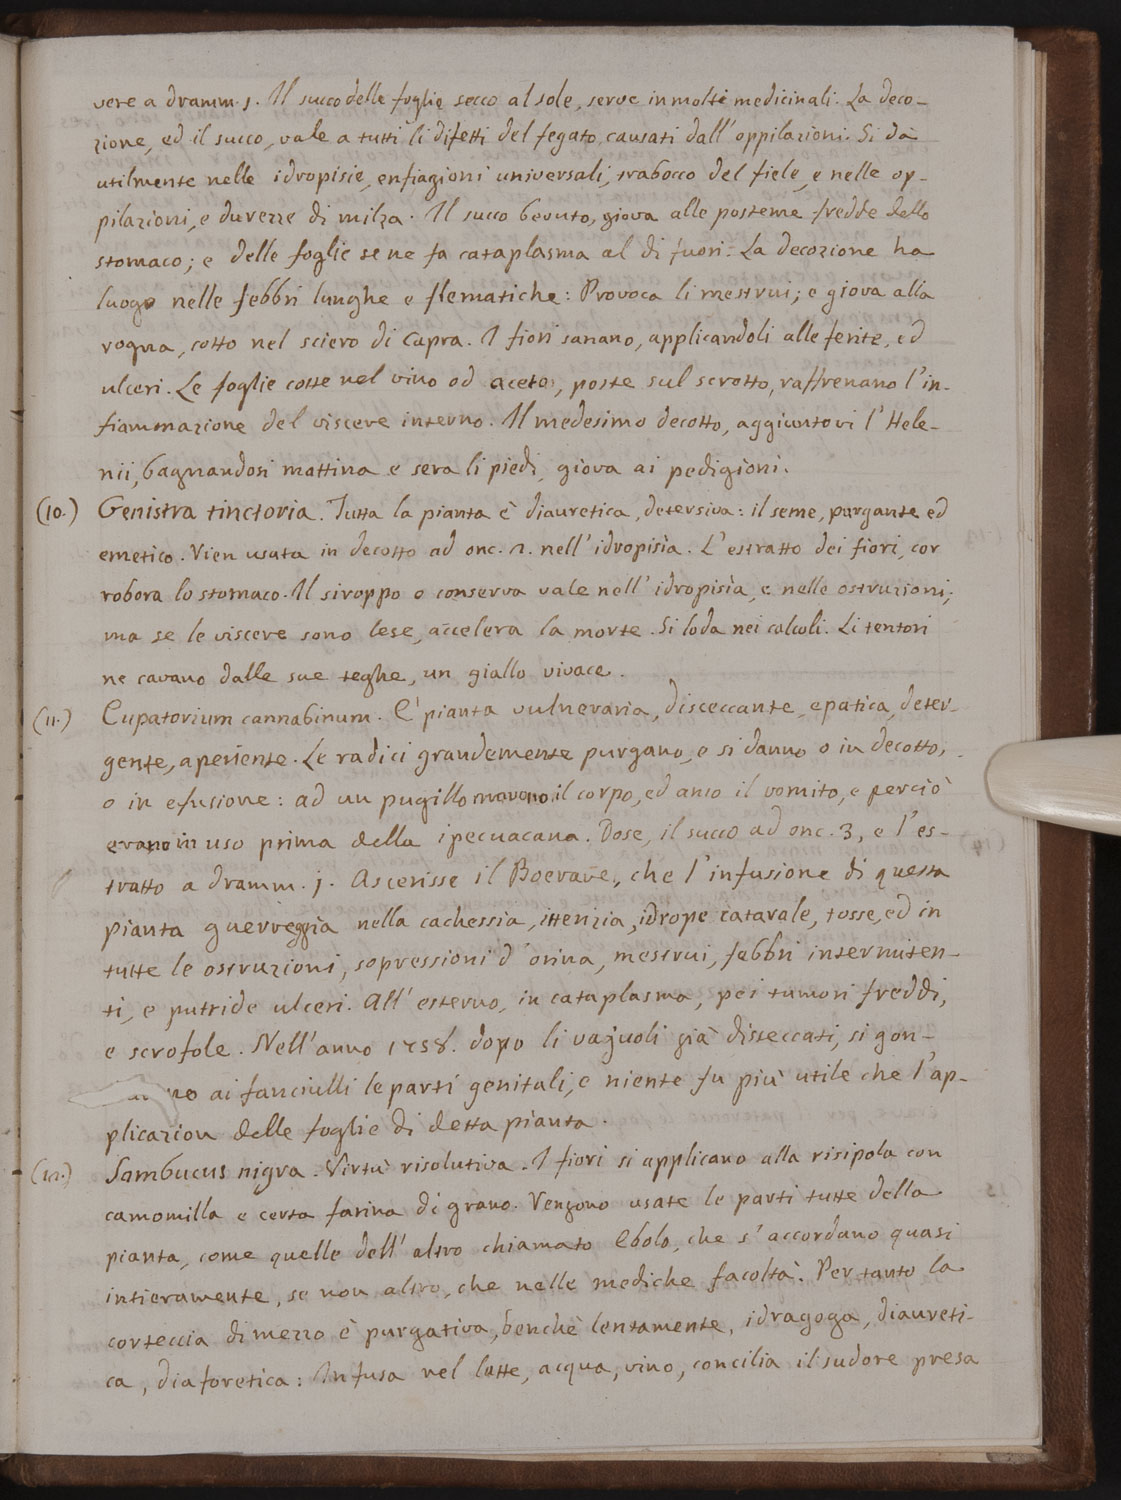 vere a dramm. j. Il succo delle foglie secco al sole, serve in molte medicinali. La deco-
zione, ed il succo, vale a tutti li difetti del fegato causati dall'oppilazioni. Si dà
utilmente nelle idropisie, enfiagioni universali, trabocco del fiele, e nelle op-
pilazioni, e durezze di milza. Il succo bevuto, giova alle posteme fredde dello
stomaco; e delle foglie se ne fa cataplasma al di fuori. La decozione ha
luogo nelle febbri lunghe e flematiche: Provoca li mestrui; e giova alla
rogna, cotto nel sciero di Capra. I fiori sanano, applicandoli alle ferite, ed
ulceri. Le foglie cotte nel vino od aceto, poste sul scrotto, raffrenano l'in-
fiammazione del viscere interno. Il medesimo decotto, aggiuntovi l'Hele-
nii, bagnandosi mattina e sera li piedi, giova ai pedigioni.
(10.) Genistra tinctoria. Tutta la pianta è diauretica, detersiva: il seme, purgante ed
emetico. Vien usata in decotto ad onc. 2. nell'idropisia. L'estratto dei fiori, cor
robora lo stomaco. Il siroppo o conserva vale nell'idropisia, e nelle ostruzioni;
ma se le viscere sono lese, accelera la morte. Si loda nei calcoli. Li tentori
ne cavano dalle sue teghe, un giallo vivace.
(11.) Eupatorium cannabinum. E' pianta vulneraria, disceccante, epatica, deter-
gente, aperiente. Le radici grandemente purgano, e si danno o in decotto,
o in efusione: ad un pugillo movono il corpo, ed anco il vomito, e perciò
erano in uso prima della ipecuacana. Dose, il succo ad onc. 3, e l'es-
tratto a dramm. j. Ascerisse il Boerave, che l'infusione di questa
pianta guerreggia nella cachessia, itterizia, idrope catarale, tosse, ed in
tutte le ostruzioni, sopressioni d'orina, mestrui, febbri intermiten-
ti, e putride ulceri. All'esterno, in cataplasma, pei tumori freddi,
e scrofole. Nell'anno 1758. dopo li vajuoli già disseccati, si gon-
no ai fanciulli le parti genitali, e niente fu più utile che l'ap-
plicazion delle foglie di detta pianta.
(12.) Sambucus nigra. Virtù risolutiva. I fiori si applicano alla risipola con
camomilla e certa farina di grano. Vengono usate le parti tutte della
pianta, come quelle dell'altro chiamato Ebolo, che s'accordano quasi
intieramente, se non altro, che nelle mediche facoltà. Per tanto la
corteccia di mezzo è purgativa, benchè lentamente, idragoga, diaureti-
ca, diaforetica: Infusa nel latte, acqua, vino, concilia il sudore presa